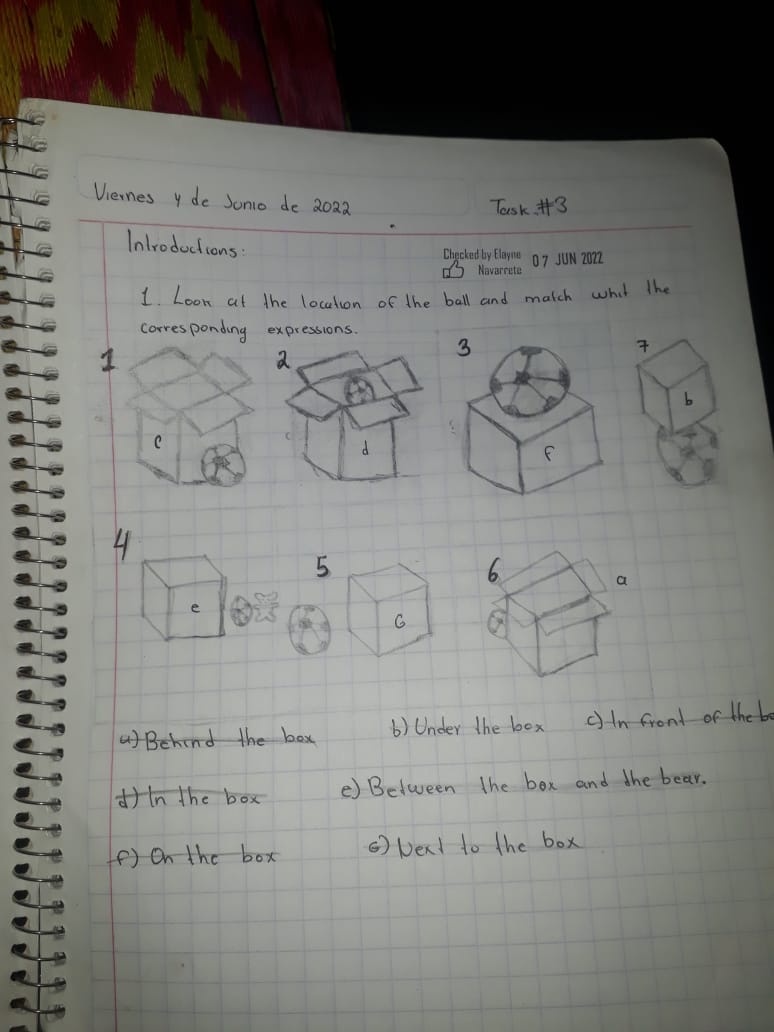 Viernes 4 de Junio de 2022
Task #3
Introductions:
Checked by Elayne Navarrete 07 JUN 2022
1. Look at the location of the ball and match whit the
corresponding expressions.
1 2 3 7
c d f b
4 5 6
e G a
a) Behind the box
b) Under the box
c) In front of the bo
d) In the box
e) Between the box and the bear.
f) On the box
G) Next to the box